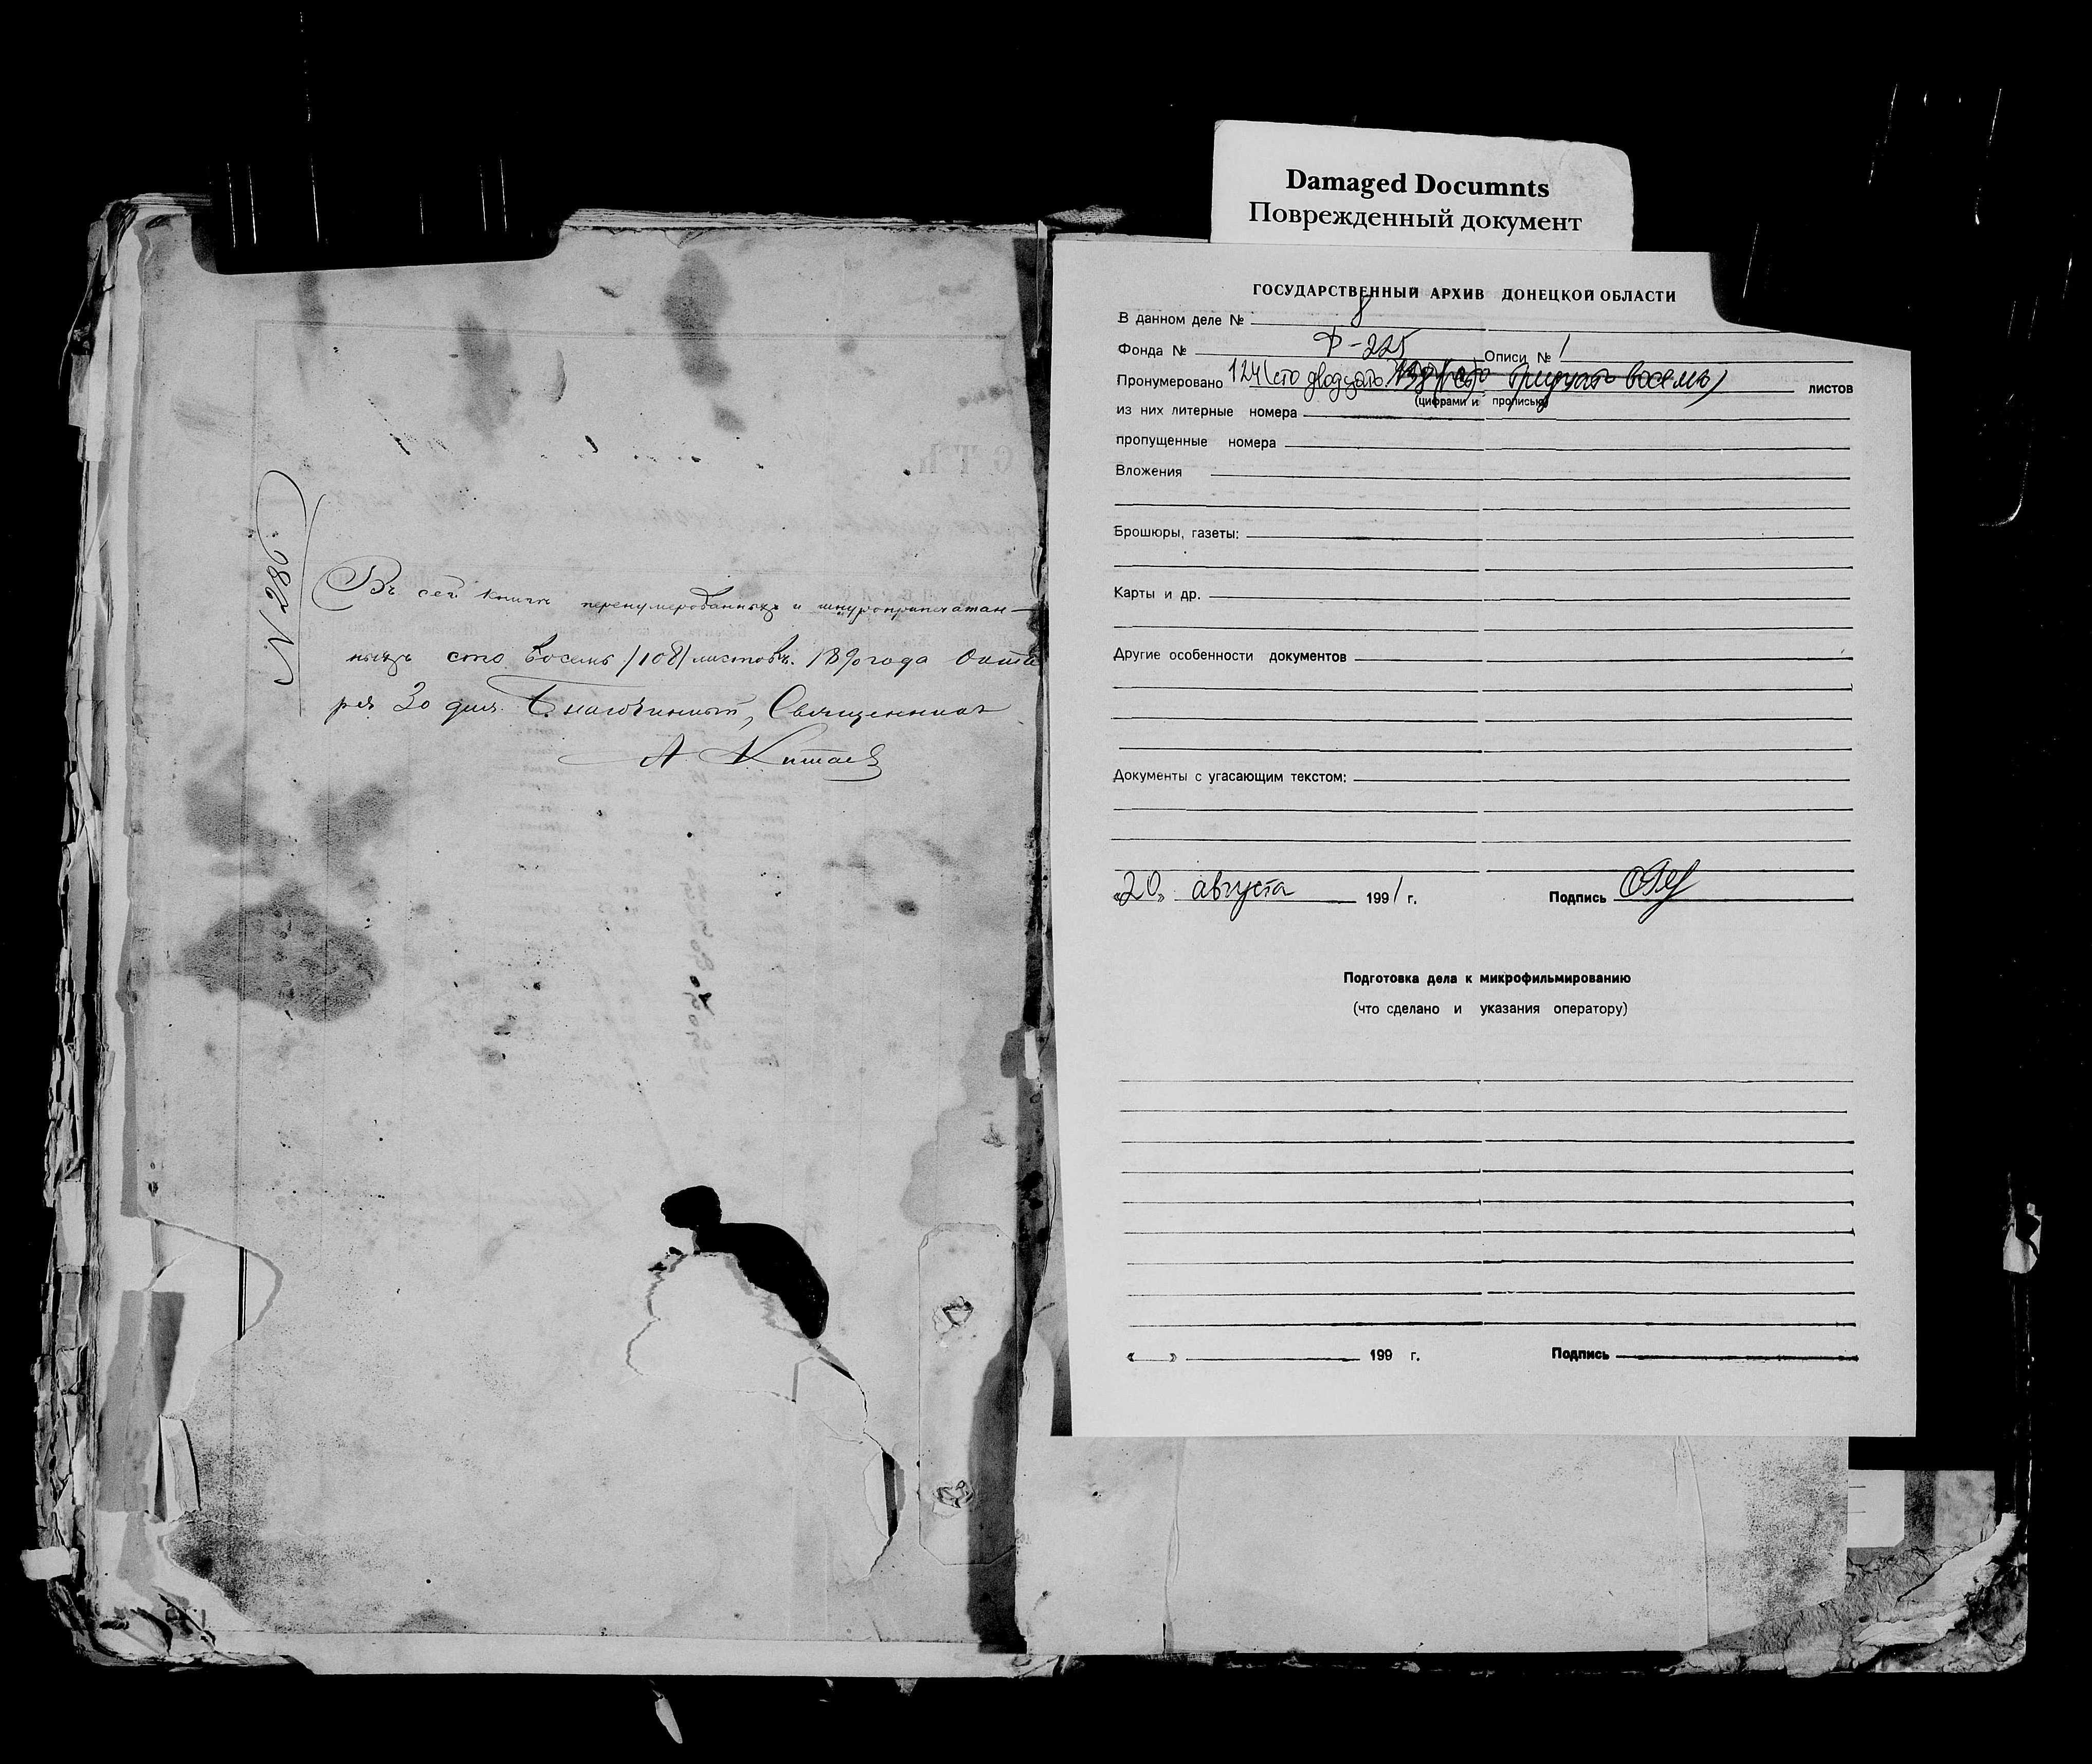 № 280.
Въ сей книгѣ перенумерованныхъ и шнуроприпечатан-
ныхъ сто восемь /108/ листовъ. 1890 года Октя
ря 30 дня. Благочинный, Священникъ
А. Китаевъ
Damaged Documnts
Поврежденный документ
ГОСУДАРСТВЕННЫЙ АРХИВ ДОНЕЦКОЙ ОБЛАСТИ
В данном деле № 8
Фонда № Ф-225 Описи № 1
Пронумеровано 124 (сто двадцать 138 (сто тридцать восемь) листов
(цифрами и прописью)
из них литерные номера
пропущенные номера
Вложения
Брошюры, газеты:
Карты и др.
Другие особенности документов
Документы с угасающим текстом:
«20» августа 1991 г. Подпись
Подготовка дела к микрофильмированию
(что сделано и указания оператору)
« » 199 г. Подпись